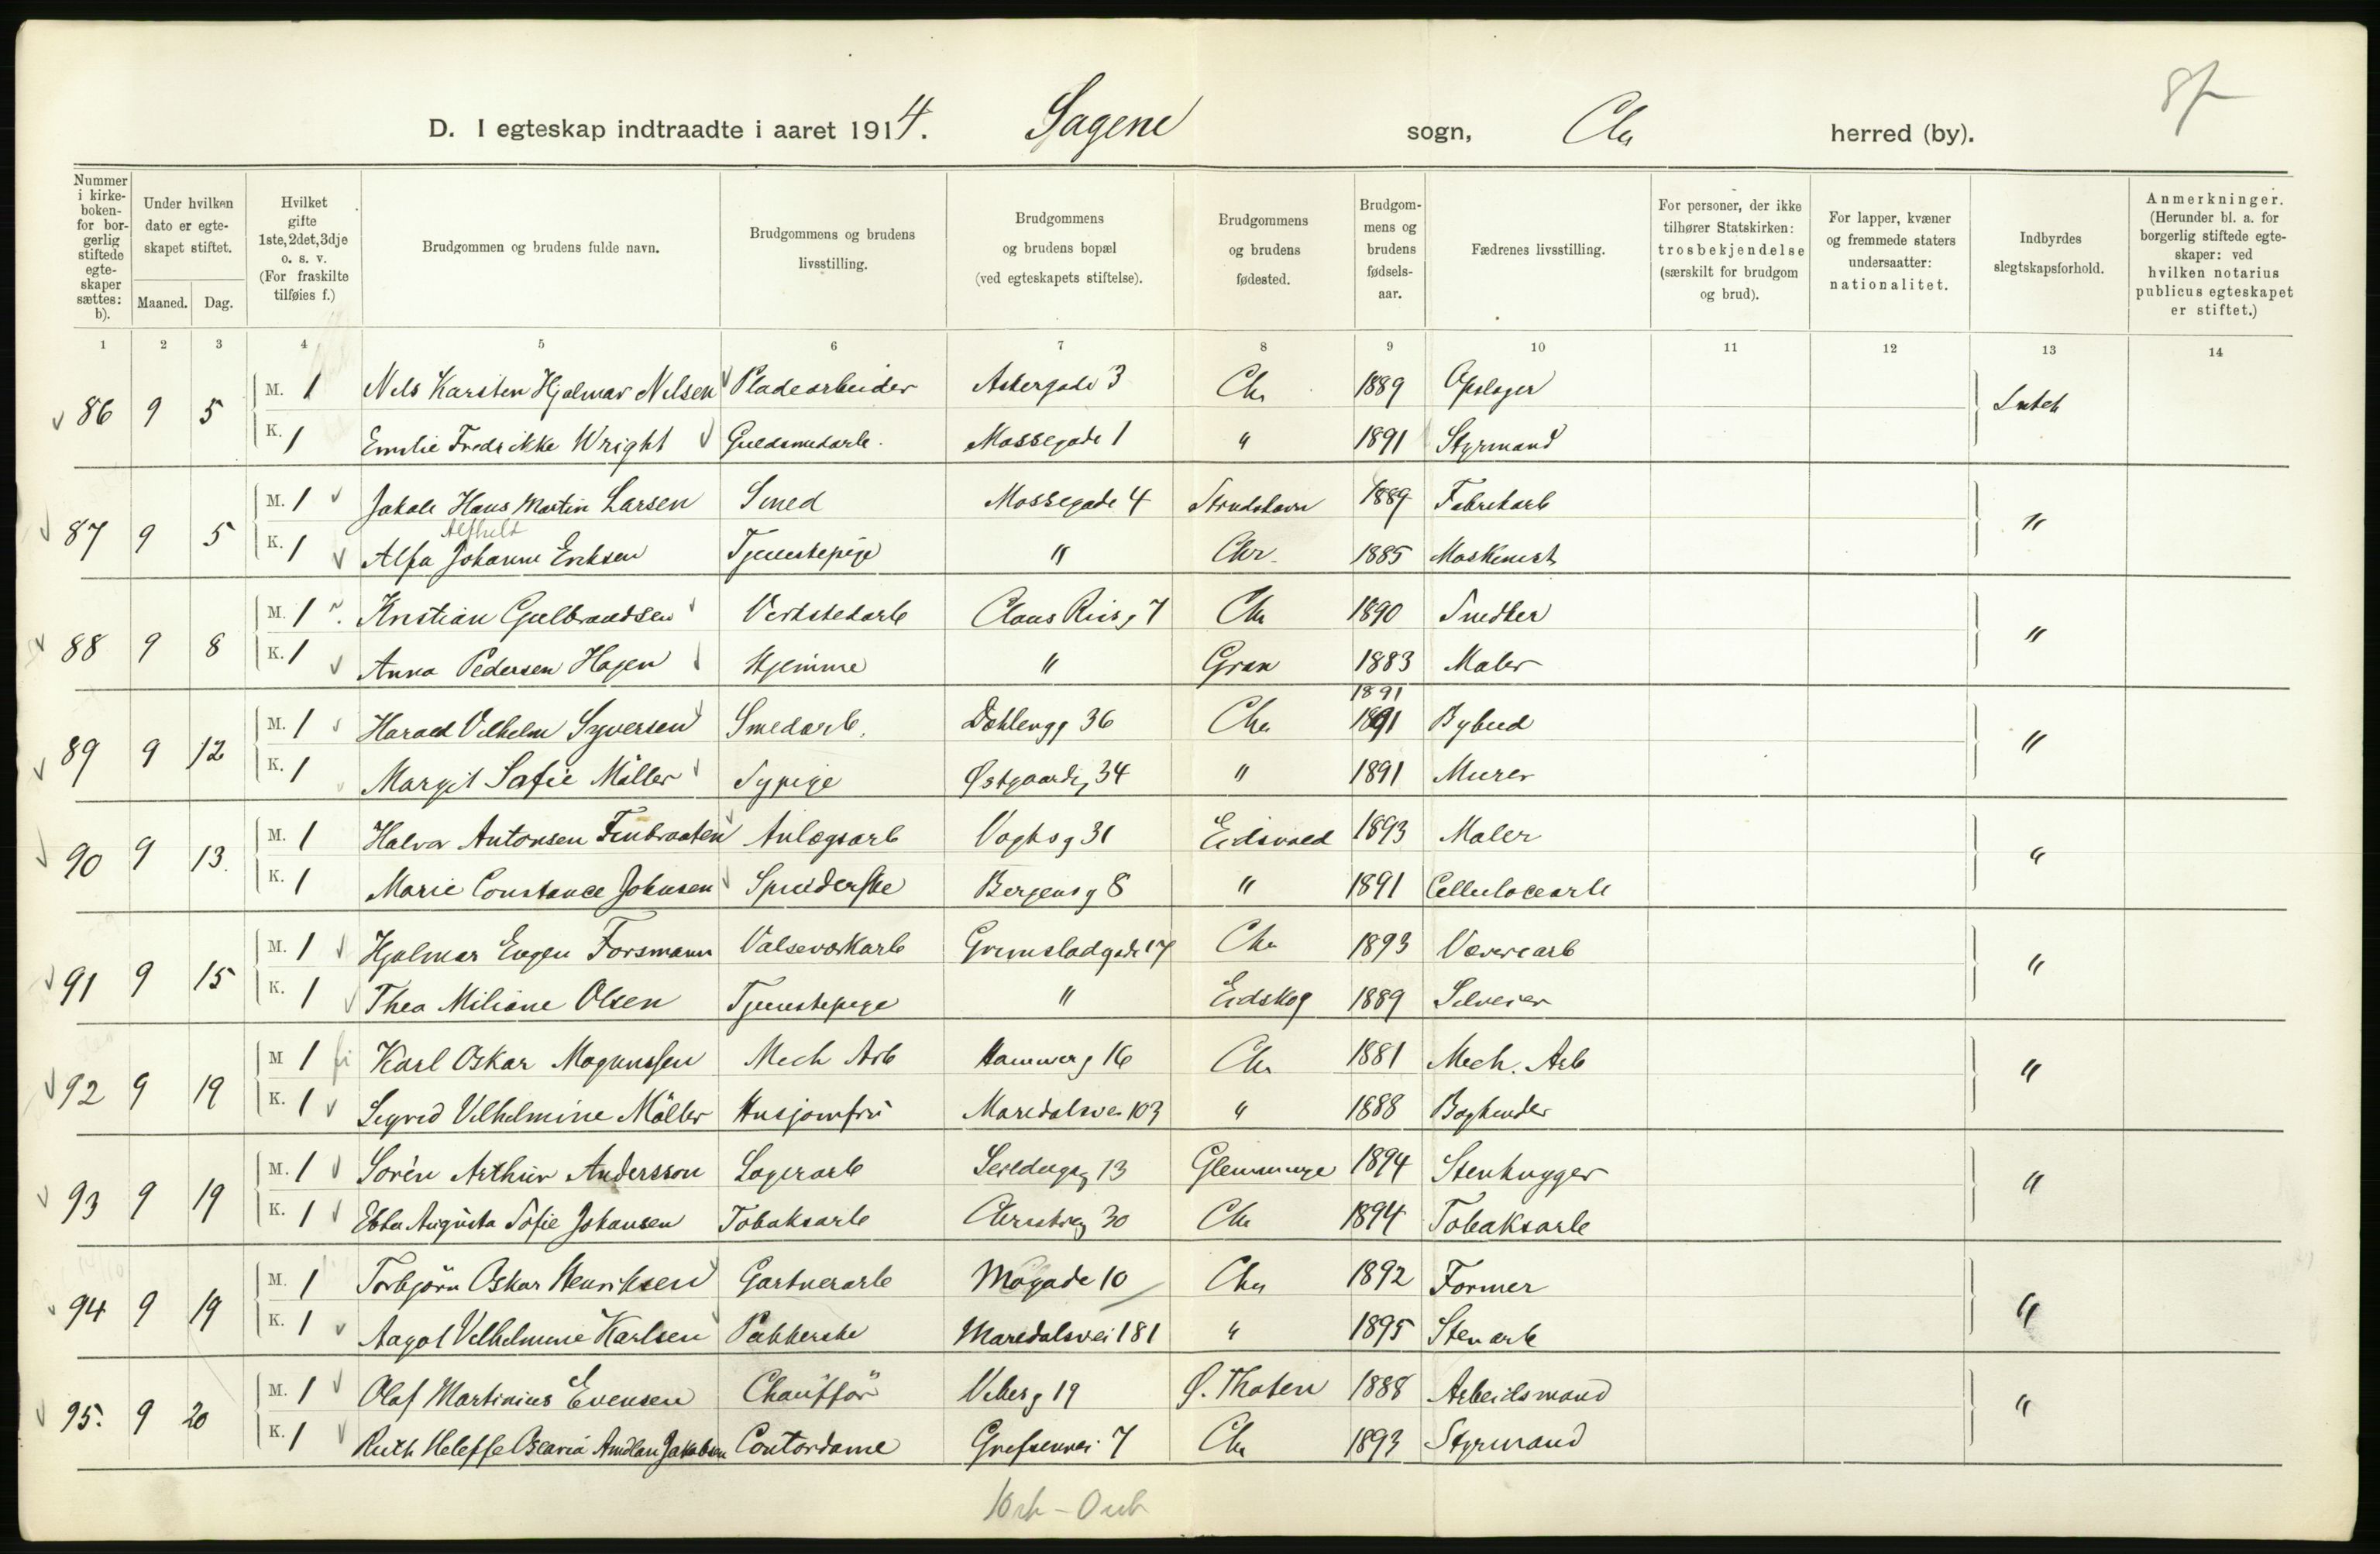 D. I egteskap indtraadte i aaret 1914. Sagene sogn, Chr herred (by).
Nummer i kirke-boken- for bor-gerlig stiftede egte-skaper sættes: b).
Under hvilken dato er egte-skapet stiftet.
Maaned. Dag.
Hvilket gifte 1ste, 2det, 3dje o. s. v. (For fraskilte tilføies f.)
Brudgommen og brudens fulde navn.
Brudgommens og brudens livsstilling.
Brudgommens og brudens bopæl (ved egteskapets stiftelse).
Brudgommens og brudens fødested.
Brudgom-mens og brudens fødsels-aar.
Fædrenes livsstilling.
For personer, der ikke tilhører Statskirken: trosbekjendelse (særskilt for brudgom og brud).
For lapper, kvæner og fremmede staters undersaatter: nationalitet.
Indbyrdes slegtskapsforhold.
Anmerkninger. (Herunder bl. a. for borgerlig stiftede egte-skaper: ved hvilken notarius publicus egteskapet er stiftet.)
1 2 3 4 5 6 7 8 9 10 11 12 13 14
86 9 5 M. 1 Nils Karsten Hjalmar Nilsen Pladearbeider Akergade 3 Chr 1889 Opslager Intet
K. 1 Emilie Fredrikke Wright Guldsmedarb. Mossegade 1 " 1891 Styrmand
87 9 5 M. 1 Jakob Hans Martin Larsen Smed Mossegade 4 1889 Fabrikarb "
Alfhild
K. 1 Alfa Johanne Eriksen Tjenestepige " Chr. 1885 Maskinist
88 9 8 M. 1 Kristian Gulbrandsen Verkstedarb Claus Riis g 7 Chr 1890 Snedker "
K. 1 Anna Pedersen Hagen Hjemme " Gran 1883 Maler
1891
89 9 12 M. 1 Harald Vilhelm Syversen Smedarb. Dahlengg 36 Chr 1891 Bybud "
K. 1 Margit Sofie Møller Sypige Østgaardg 34 " 1891 Murer
90 9 13. M. 1 Halvor Antonsen Finbraaten Anlægsarb Vogtsg 31 Eidsvold 1893 Maler "
K. 1 Marie Constance Johnsen Spinderske Bergensg 8 " 1891 Cellulocearb
91 9 15 M. 1 Hjalmar Eugen Forsmann Valseværkarb Grimstadgade 17 Chr 1893 Væverearb "
K. 1 Thea Miliane Olsen Tjenestepige " Eidskog 1889 Selveier
92 9 19 M 1 Karl Oskar Magnussen Mech Arb Hammerg 16 Chr 1881 Mech. Arb "
K. 1 Sigrid Vilhelmine Møller Husjomfru Maridalsvei 103 " 1888 Bogbinder
93 9 19 M. 1 Sorén Arthur Andersson Lagerarb Seildugsg 13 Glemminge 1894 Stenhugger "
K. 1 Ebba Augusta Sofie Johansen Tobaksarb 30 Chr 1894 Tobaksarb
94 9 19 M. 1 Torbjørn Oskar Henriksen Gartnerarb Mogade 10 Chr 1892 Former "
K. 1 Aagot Vilhelmine Karlsen Pakkerske Maridalsvei 181 " 1895 Stenarb
95. 9 20 M. 1 Olaf Martinius Evensen Chauffør Viberg 19 Ø. Thoten 1888 Arbeidsmand "
K. 1 Ruth Jakobsen Contordame Grefsenvei 7 Chr 1893 Styrmand